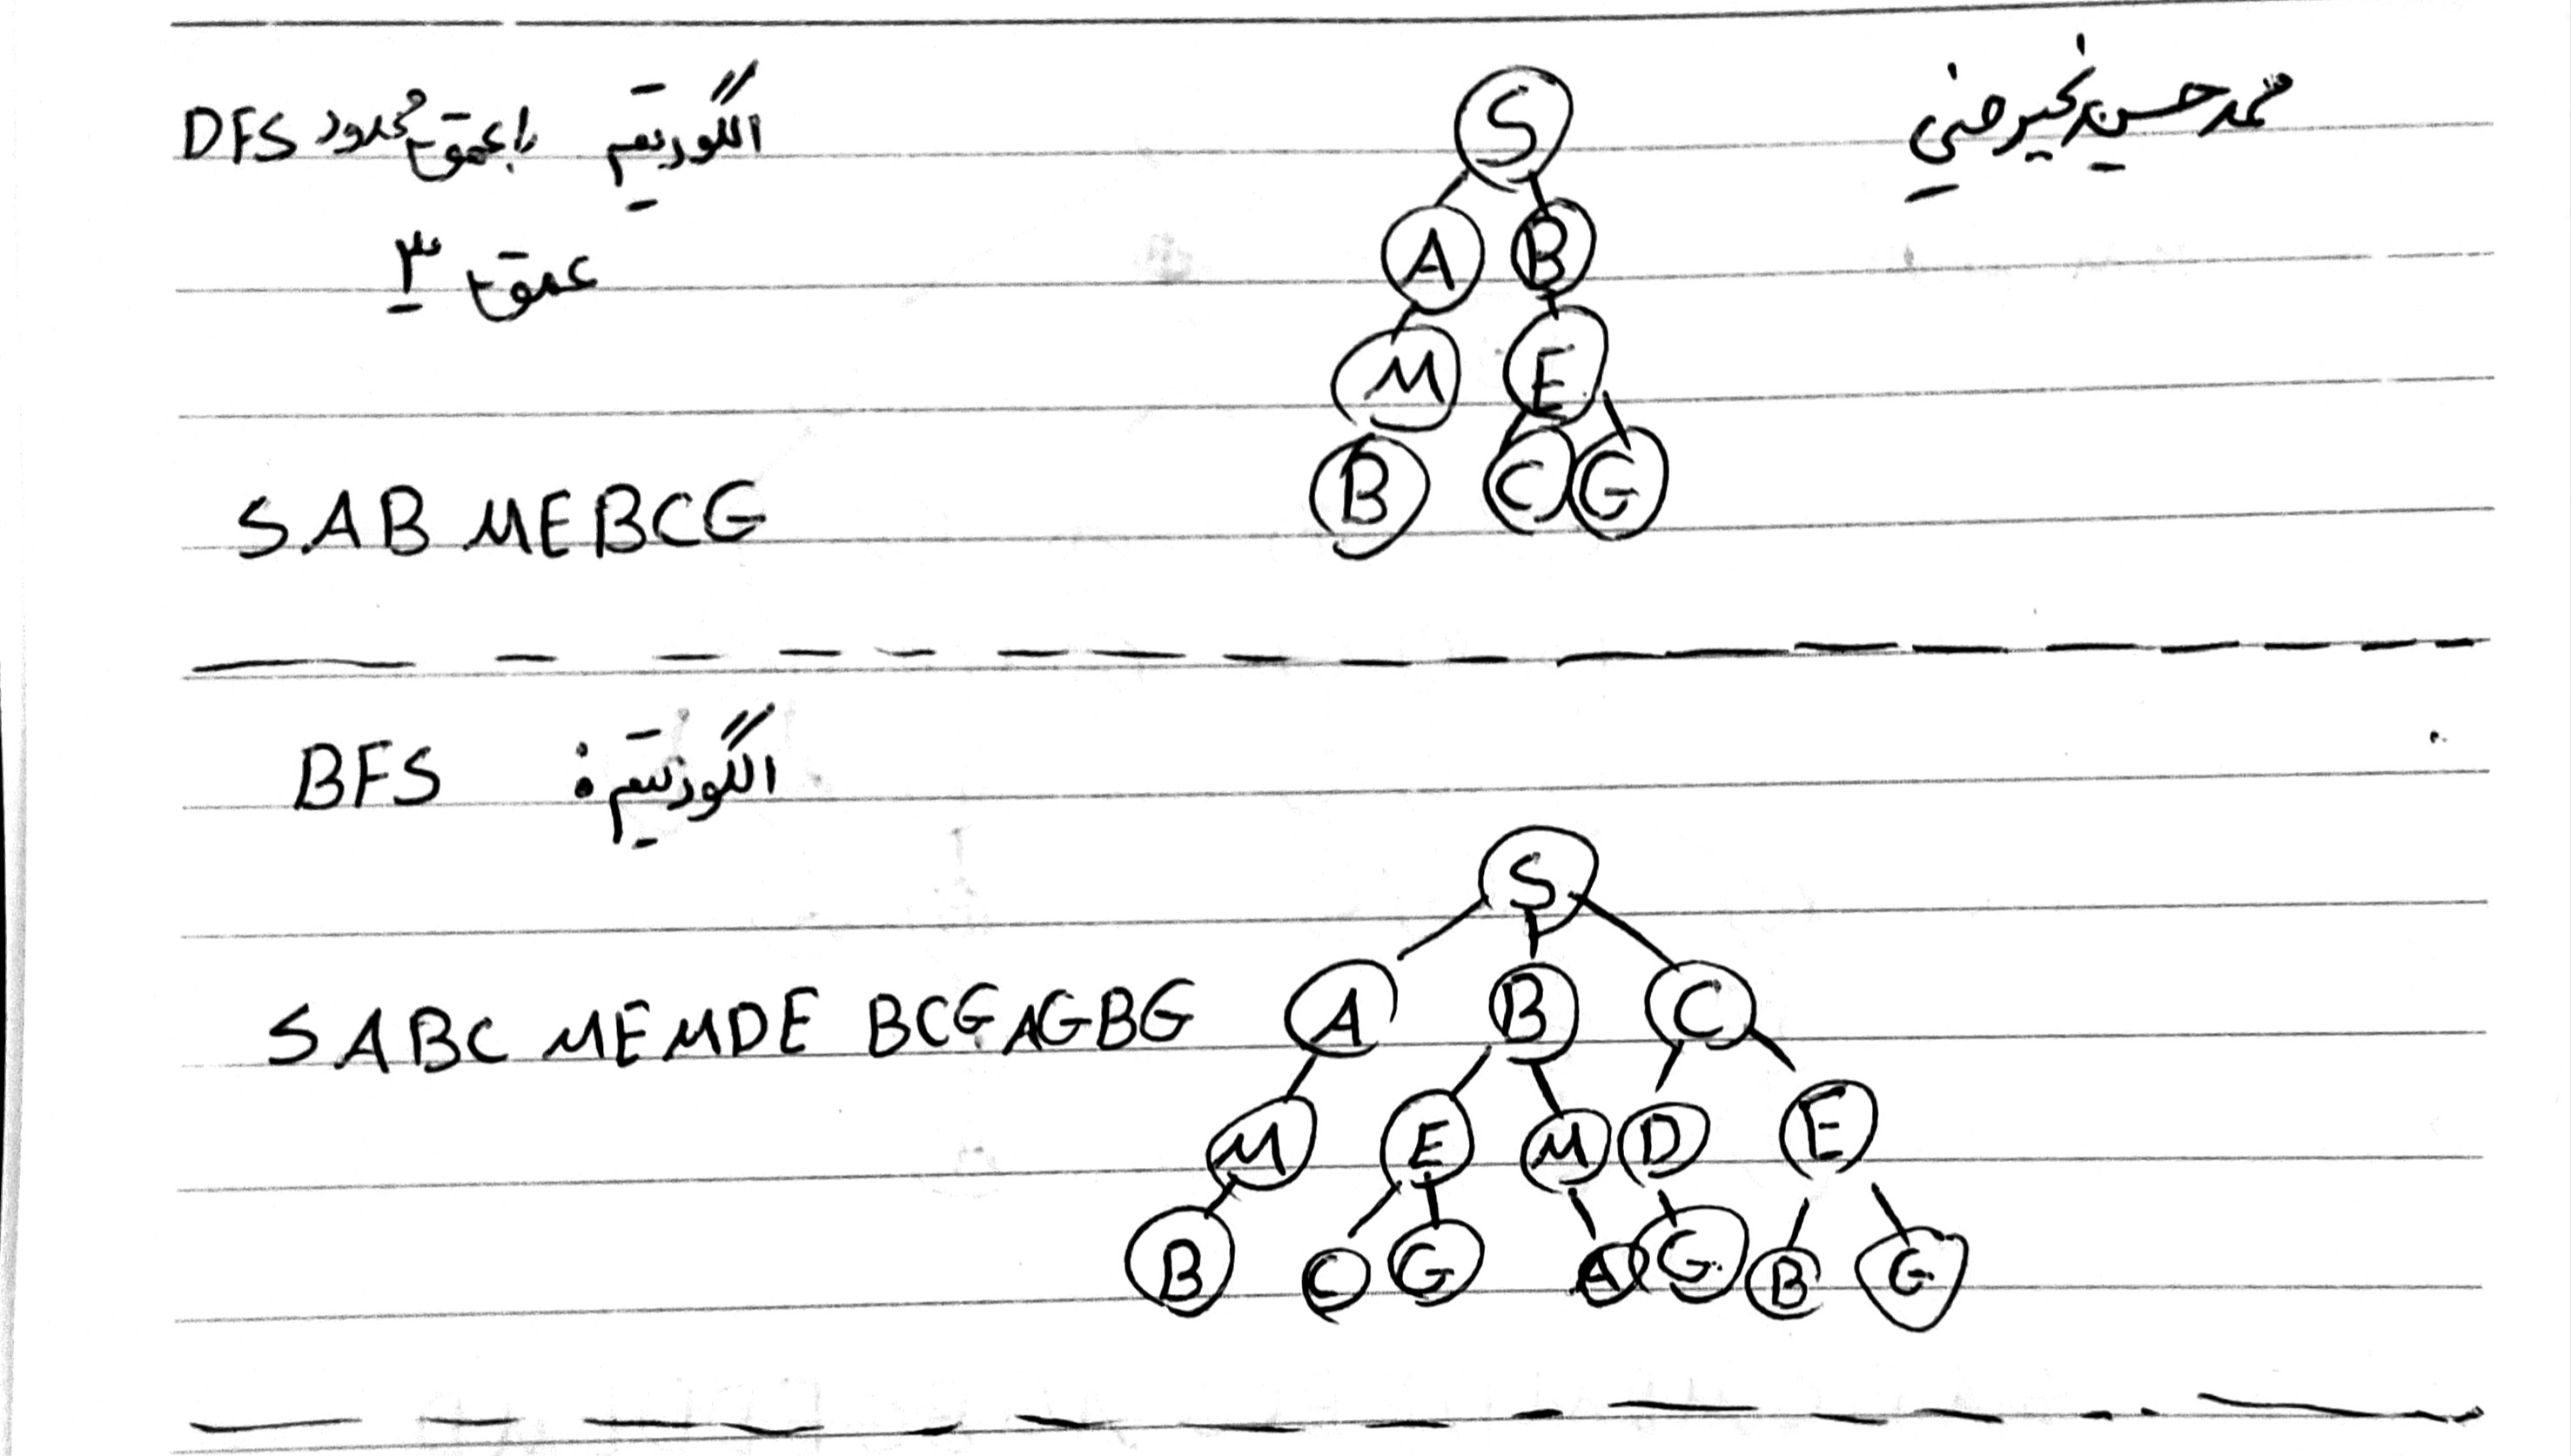 محمد حسین
الگوریتم با عمق محدود DFS
عمق ۳
S
A B
M E
B C G
SAB MEBCG
الگوریتم: BFS
S
A B C
SABC MEMDE BCGAGBG
M E M D E
B C G A G B G